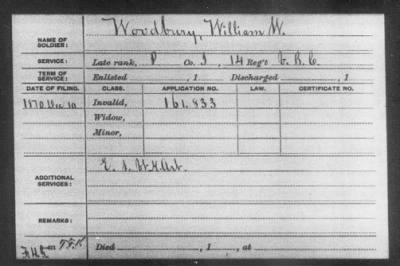 NAME OF SOLDIER: Woodbury, William W.
SERVICE: Late rank, P Co. I, 14 Reg't V. R. C.
TERM OF SERVICE: Enlisted , 1 Discharged , 1
DATE OF FILING. CLASS. APPLICATION NO. LAW. CERTIFICATE NO.
1870 Dec 10 Invalid, 161.833
Widow,
Minor,
ADDITIONAL SERVICES: E. 1.
REMARKS:
Died , 1 , at